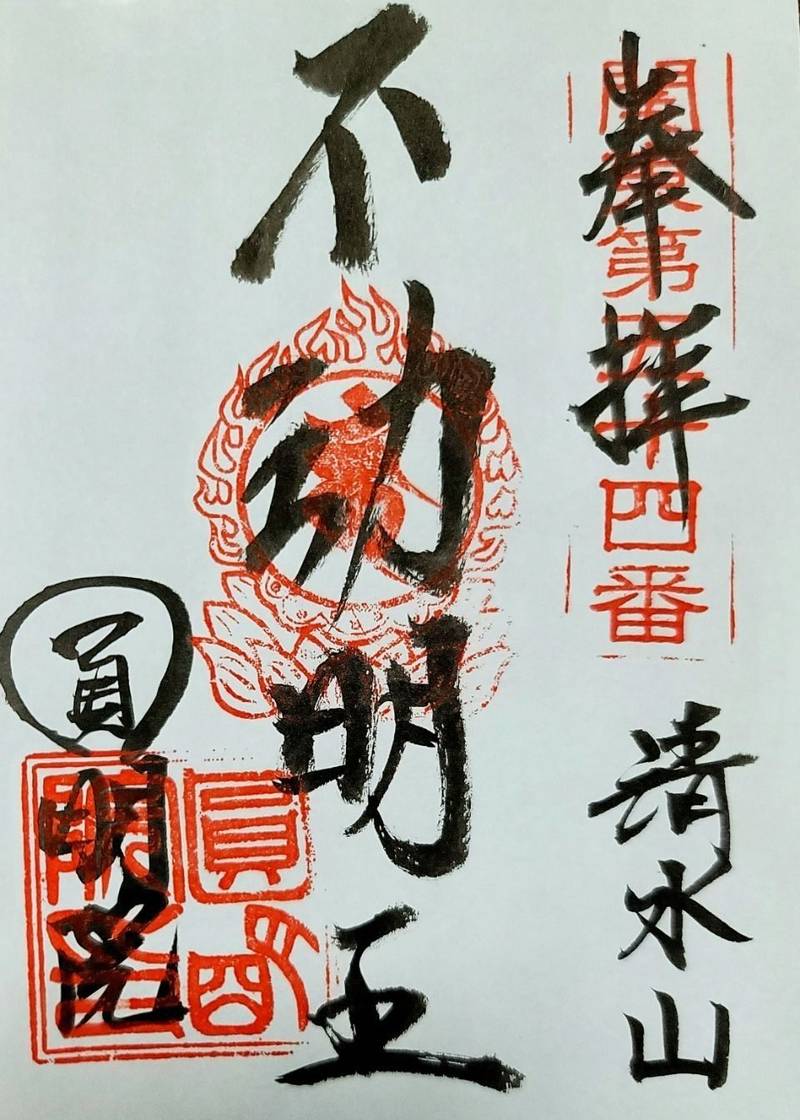 奉拝
清水山
關東第五十四番
不動明王
圓明院
圓明院